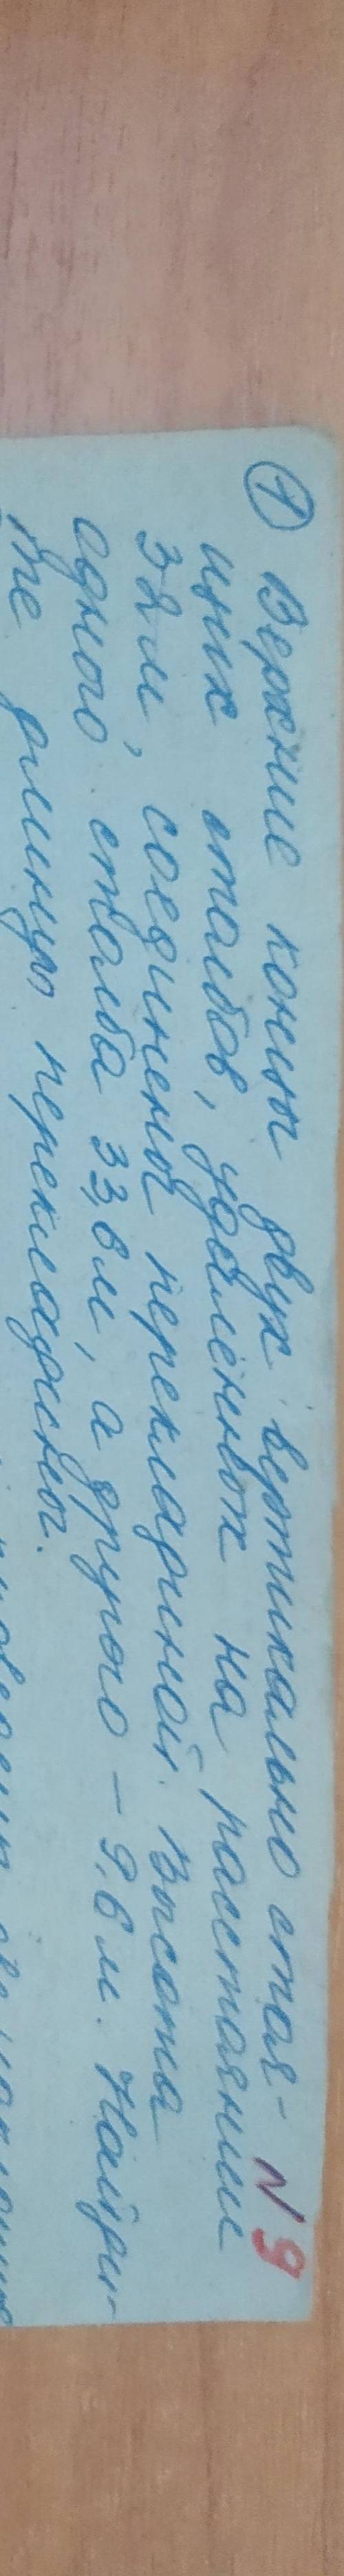 N 9
① Верхние концы двух вертикально стоя-
щих столбов, удалённых на расстоянии
32м, соединены перекладиной. Высота
одного столба 33,6м, а другого – 9,6м. Найди-
те длину перекладины.